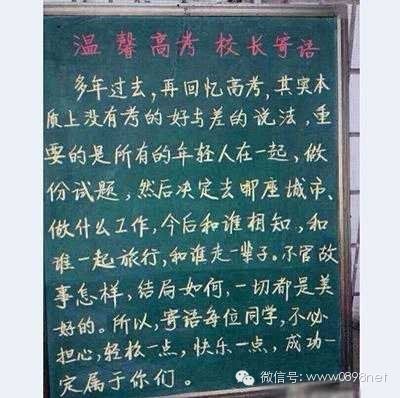 温馨高考 校长寄语
多年过去，再回忆高考，其实本
质上没有考的好与差的说法，重
要的是所有的年轻人在一起，做
份试题，然后决定去哪座城市、
做什么工作，今后和谁相知，和
谁一起旅行，和谁走一辈子。不管故
事怎样，结局如何，一切都是美
好的。所以，寄语每位同学，不必
担心，轻松一点，快乐一点，成功一
定属于你们。
微信号: www0898net